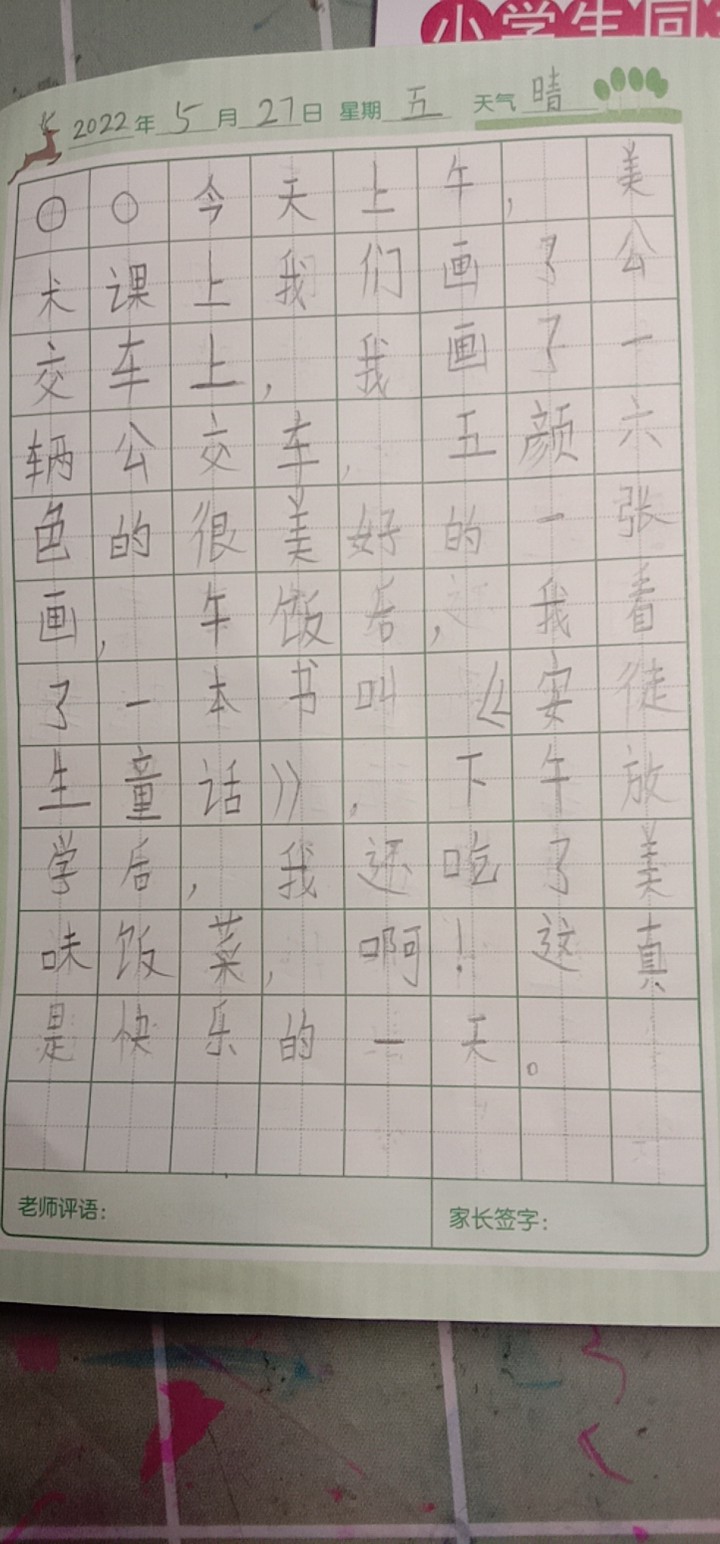 小学生同
2022年5月27日 星期五 天气晴
〇〇今天上午，美
术课上我们画了公
交车上，我画了一
辆公交车，五颜六
色的很美好的一张
画，午饭后，我看
了一本书叫《安徒
生童话》，下午放
学后，我还吃了美
味饭菜，啊！这真
是快乐的一天。
老师评语： 家长签字：